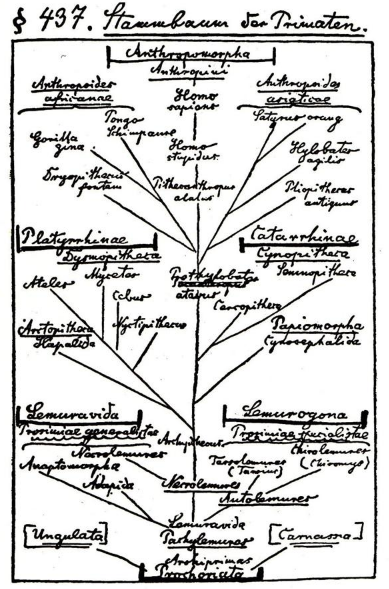 § 437. Stammbaum der Primaten.
Anthropomorpha
Anthropini
Anthropoides
africanae
Homo
sapiens
Anthropoides
asiaticae
Pongo
Schimpanse
Satyrus orang
Gorilla
gina
Homo
stupidus
Hylobates
agilis
Dryopithecus
fontani
Pithecanthropus
alalus
Pliopithecus
antiquus
Platyrrhinae
Dysmopitheca
Catarrhinae
Cynopitheca
Ateles
Mycetes
Prothylobates
atavus
Semnopitheca
Cebus
Cercopitheca
Arctopitheca
Hapalida
Nyctipithecus
Papiomorpha
Cynocephalida
Lemuravida
Prosimiae generalistae
Archipithecus
Lemurogona
Prosimiae specialistae
Necrolemures
Chirolemures
(Chiromys)
Anaptomorpha
Tarsolemures
(Tarsius)
Adapida
Necrolemures
Autolemures
Lemuravida
Pachylemures
[Ungulata]
[Carnassia]
Archiprimas
Prochoriata